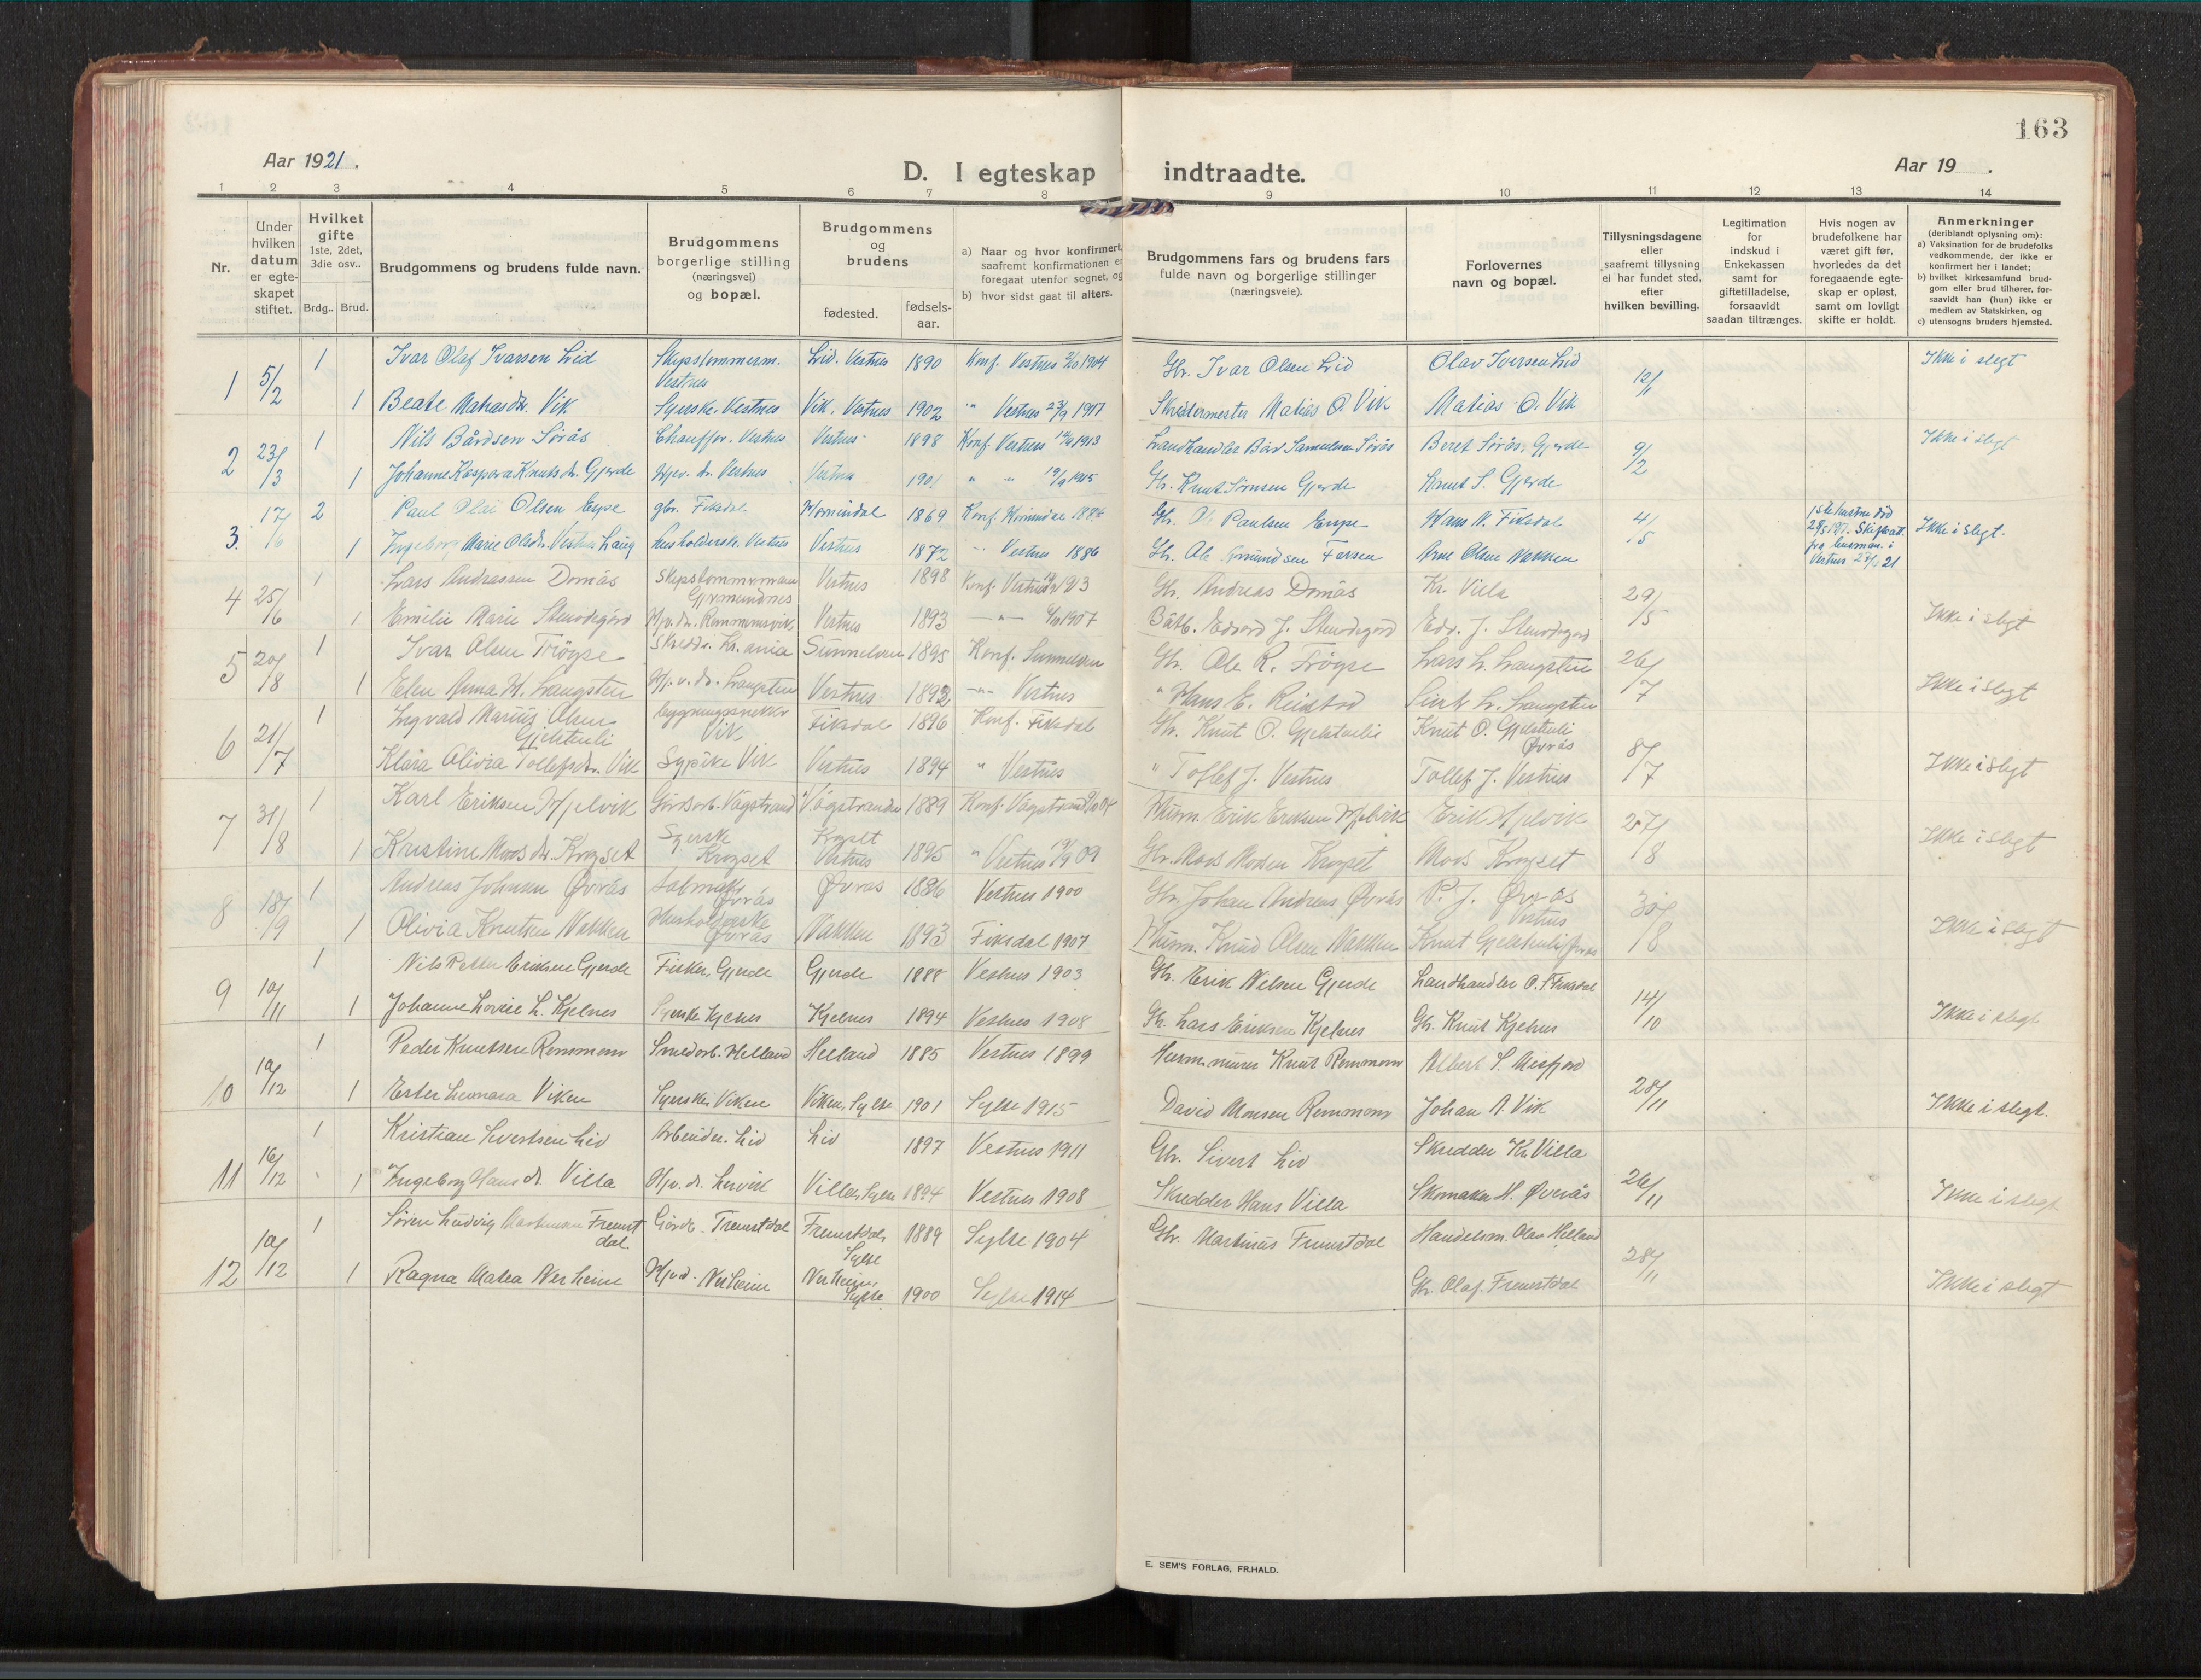 163
Aar 1921.
D. I egteskap indtraadte.
Aar 19 .
1 2 3 4 5 6 7 8 9 10 11 12 13 14
Nr.
Under hvilken datum er egte-skapet stiftet.
Hvilket gifte 1ste, 2det, 3die osv..
Brdg.. Brud.
Brudgommens og brudens fulde navn.
Brudgommens borgerlige stilling (næringsvei) og bopæl.
Brudgommens og brudens
fødested. fødsels-aar.
a) Naar og hvor konfirmert, saafremt konfirmationen er foregaat utenfor sognet, og
b) hvor sidst gaat til alters.
Brudgommens fars og brudens fars fulde navn og borgerlige stillinger (næringsveie).
Forlovernes navn og bopæl.
Tillysningsdagene eller saafremt tillysning ei har fundet sted, efter hvilken bevilling.
Legitimation for indskud i Enkekassen samt for giftetilladelse, forsaavidt saadan tiltrænges.
Hvis nogen av brudefolkene har været gift før, hvorledes da det foregaaende egte-skap er opløst, samt om lovligt skifte er holdt.
Anmerkninger
(deriblandt oplysning om):
a) Vaksination for de brudefolks vedkommende, der ikke er konfirmert her i landet;
b) hvilket kirkesamfund brud-gom eller brud tilhører, for-saavidt han (hun) ikke er medlem av Statskirken, og
c) utensogns bruders hjemsted.
1 5/2 1 Ivar Olaf Ivarsen Lid Skipstømmerm. Vestnes Lid. Vestnes 1890 Konf. Vestnes 2/10 1904 Gbr. Ivar Olsen Lid Olav Iversen Lid 12/1 Ikke i slegt
1 Beate Matiasdtr. Vik Syerske. Vestnes Vik. Vestnes 1902 " Vestnes 23/9 1917 Skreddermester Matias O. Vik Matias O. Vik
2 23/3 1 Nils Bårdsen Sørås Chauffør. Vestnes Vestnes 1898 Konf. Vestnes 1913 Landhandler Bård Samuelsen Sørås Beret Sørås, Gjerde 9/2 Ikke i slegt
1 Johanne Kaspara Knutsdtr. Gjerde Hjv. dtr. Vestnes Vestnes 1901 " " 19/9 1915 Gbr. Knut Sørnsen Gjerde Knut S. Gjerde
3. 17/6 2 Paul Olai Olsen Espe gbr. Fiksdal Hornindal 1869 Konf. Hornindal Gbr. Paulsen Espe Hans N. Fiksdal 4/5 1ste hustru død Skifteat. fra lensman. i Vestnes 21 Ikke i slegt.
1 Ingeborg Marie Olsdtr. Vestnes Husholdersk. Vestnes Vestnes 1872 " Vestnes 1886 Gb. Ole Amundsen Arne Olsen Nakken
4 25/6 1 Lars Andreassen Domås Skipstømmermann Gjermundnes Vestnes 1898 Konf. Vestnes 1913 Gbr. Andreas Domås Kr. Villa 29/5
1 Emilie Marie Stenodegård Hjv. dtr. Remmemsvik Vestnes 1893 —"— 1907 Båtb. Edvard J. Stenodegård Edv. J. Stenodegård Ikke i slegt
5 20/8 1 Ivar Olsen Trögse Skredder. Kr.ania Sunnelven 1895 Konf. Sunnelven Gbr. Ole R. Trögse Lars L. Langsten 26/7
1 Elen Anna H. Langsten Hj. v. dr. Langsten Vestnes 1892 —"— Vestnes " Hans E. Reistad L. Langsten Ikke i slegt
6 21/7 1 Ingvald Marius Olsen Gjelstenli bygningssnekker Vik Fiksdal 1896 Konf. Fiksdal Gbr. Knut O. Gjelstenli Knut O. Gjelstenli Øvrås 8/7
1 Klara Olivia Tollefsdtr. Vik Sypike Vik Vestnes 1894 " Vestnes " Tollef J. Vestnes Tollef J. Vestnes Ikke i slegt
7 31/8 1 Karl Eriksen Hjelvik Gårdsarb. Vågstrand Vågstranda 1889 Konf. Vågstrand Husm. Erik Eriksen Hjelvik Erik Hjelvik 27/8
1 Kristine Moosdtr. Krogset Syerske Krogset Krogset Vestnes 1895 " Vestnes 09 Gbr. Moos Mosen Krogset Moos Krogset Ikke i slegt
8 18/9 1 Andreas Johnsen Øvrås Salmak Øvrås Øvrås 1886 Vestnes 1900 Gbr. Johan Andreas Øvrås P. J. Øvrås Vestnes 30/8
1 Olivia Knutsen Nakken Husholderske Øvrås Nakken 1893 Fiksdal 1907 Husm. Knud Olsen Nakken Knut Gjelstenli Øvrås Ikke i slegt
9 10/11 1 Nils Petter Eriksen Gjerde Fisker, Gjerde Gjerde 1888 Vestnes 1903 Gbr. Erik Nilsen Gjerde Landhandler O. T. Fiksdal 14/10
1 Johanne Lovise L. Kjelnes Syerske Kjelnes Kjelnes 1894 Vestnes 1908 Gb. Lars Eriksen Kjelnes Gb. Knut Kjelnes Ikke i slegt
10 10/12 1 Peder Knutsen Remmem Smedarb. Helland Helland 1885 Vestnes 1899 Husm. murer Knut Remmem Albert S. Misfjord 28/11
1 Ester Leonara Viken Syerske, Viken Viken, Sylte 1901 Sylte 1915 David Monsen Remmem Johan A. Vik Ikke i slegt.
11 16/12 1 Kristian Sivertsen Lid Arbeider. Lid Lid 1897 Vestnes 1911 Gbr. Sivert Lid Skredder Kr. Villa 26/11
1 Ingeborg Hansdtr. Villa Hjv. dr. Leirvik Villa, Sylte 1894 Vestnes 1908 Skredder Hans Villa Skomaker H. Øverås Ikke i slegt
12 10/12 1 Søren Ludvig Martinsen Fremstdal Gårdb. Fremstdal Fremstdal, Sylte 1889 Sylte 1904 Gbr. Martinus Fremstdal Handelsm. Olav Helland 28/11
1 Ragna Matea Nerheim Hjvd. Nerheim Nerheim, Sylte 1900 Sylte 1914 Gb. Olaf Fremstdal Ikke i slegt
E. SEM'S FORLAG, FR.HALD.